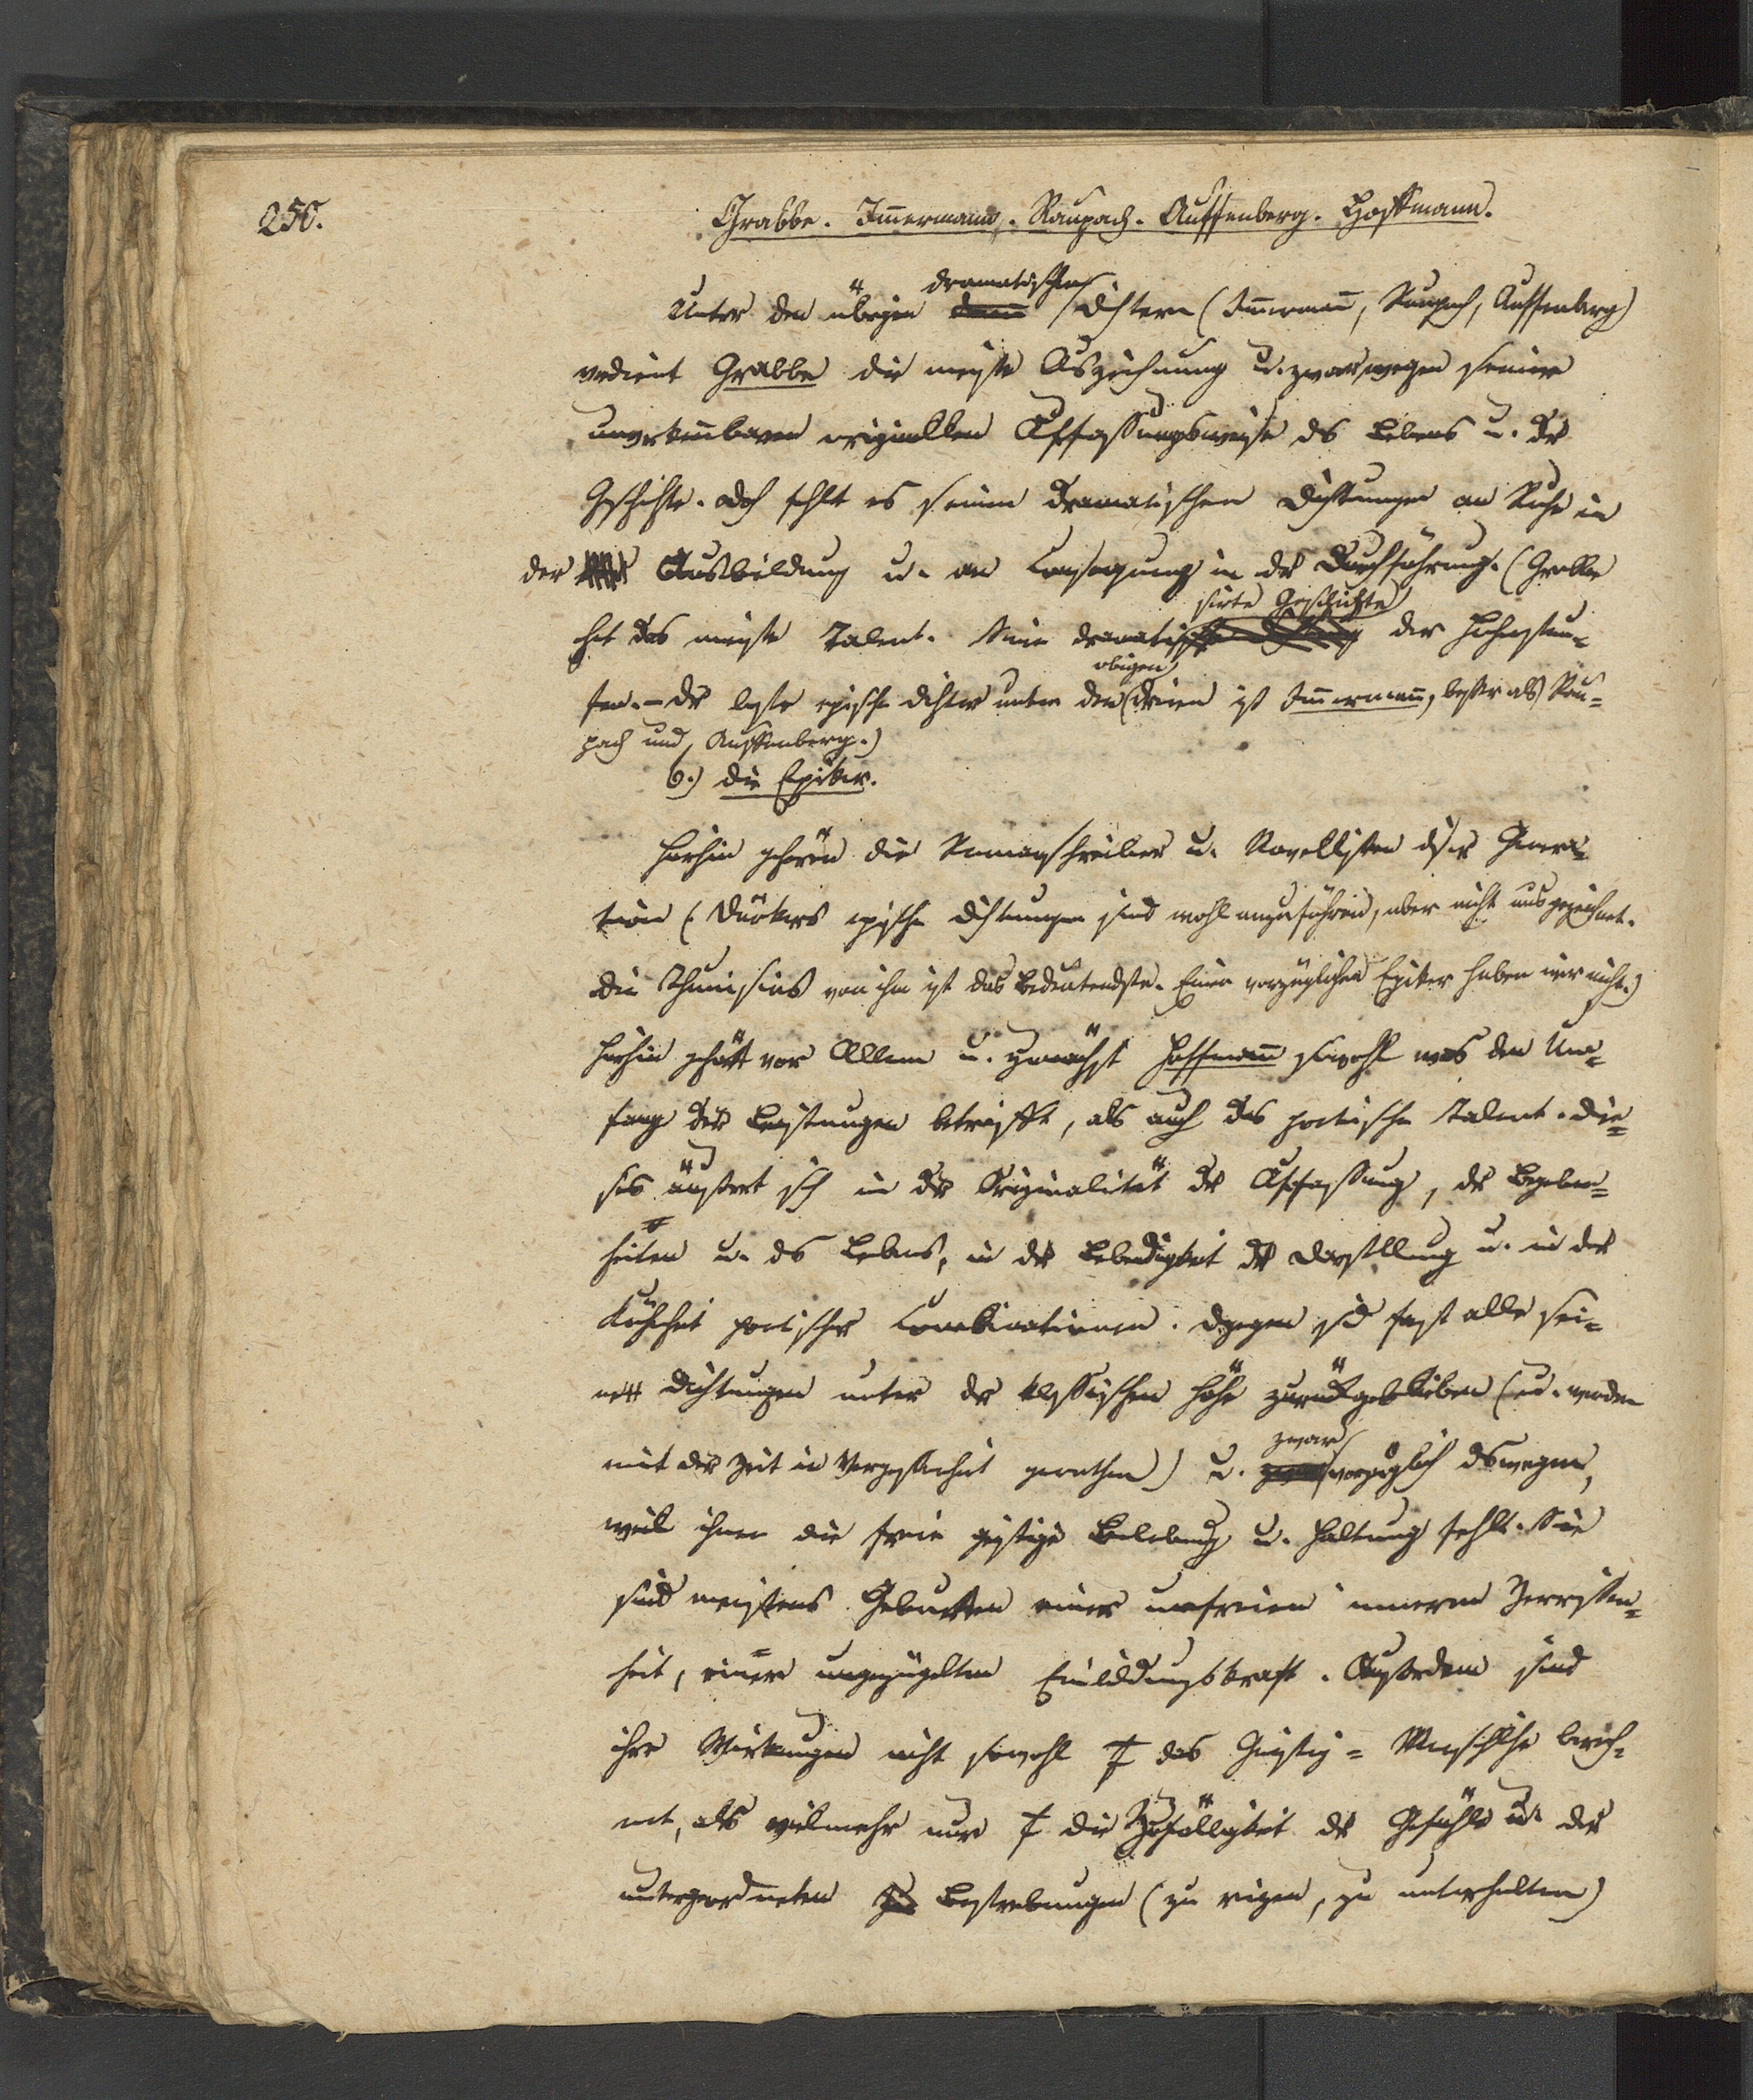 250.
Grabbe. Im̅ermann. Raupach. Auffenberg. Hoffmann.
Unter den übrigen dramatischen Dichtern (Im̅erman̅, Raupach, Auffenberg)
verdient Grabbe die meiste Auszeichnung u. zwar wegen seiner
unverken̅baren originellen Auffassungsweise des Lebens u. der
Geschichte. Doch fehlt es seinen dramatischen Dichtungen an Ruhe in
der Ausbildung u. an Consequenz in der Durchführung. (Grabbe
hat das meiste Talent. Seine dramatisirte Geschichte der Hohenstau=
fen. – Der beste epische Dichter unter den obigen dreien ist Im̅erman̅, besser als Rau=
pach und Auffenberg.)
b.) Die Epiker.
Hierhin gehören die Romanschreiber u. Novellisten dieser Genera=
tion ( epische Dichtungen sind wohl anzuführen, aber nicht ausgezeichnet.
Die Tunisias von ihm ist das Bedeutendste. Einen vorzüglichen Epiker haben wir nicht.)
Hierhin gehört vor Allem u. zunächst Hoffman̅ sowohl was den Um=
fang der Leistungen betrifft, als auch das poetische Talent. Die=
ses äußert sich in der Originalität der Auffassung, der Begeben=
heiten u. des Lebens, in der Lebendigkeit der Darstellung u. in der
Kühnheit poetischer Combinationen. Dagegen sind fast alle sei=
ne Dichtungen unter der klassischen Höhe zurückgeblieben (u. werden
mit der Zeit in Vergessenheit gerathen) u. zwar vorzüglich deswegen,
weil ihnen die freie geistige Belebung u. Haltung fehlt. Sie
sind meistens Geburten einer unfreien inneren Zerrissen=
heit, einer ungezügelten Einbildungskraft. Außerdem sind
ihre Wirkungen nicht sowohl † das Geistig = Menschliche berech=
net, als vielmehr nur † die Zufälligkeit der Gefühle u. der
untergeordneten Bestrebungen (zu reizen, zu unterhalten)